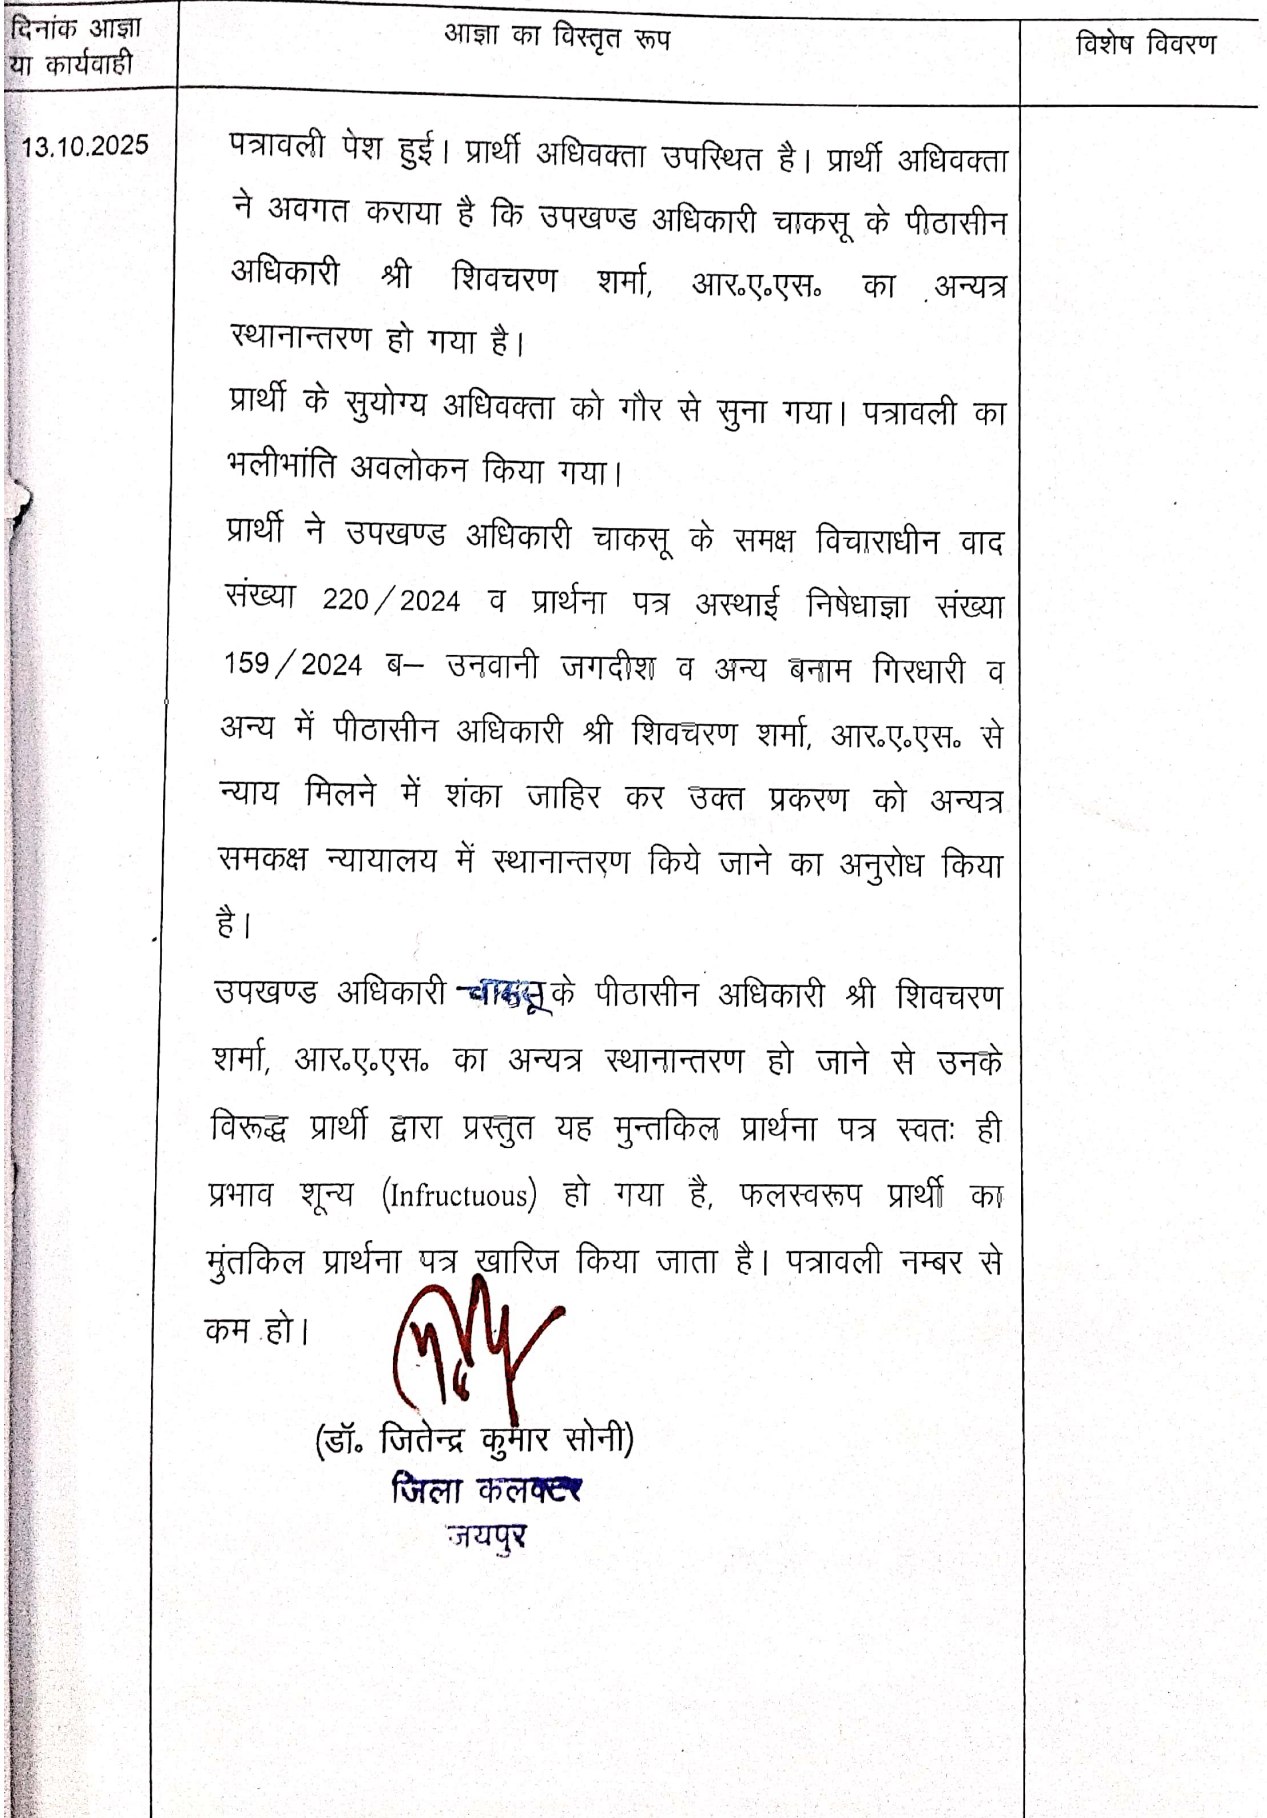 दिनांक आज्ञा
या कार्यवाही
आज्ञा का विस्तृत रूप
विशेष विवरण
13.10.2025
पत्रावली पेश हुई। प्रार्थी अधिवक्ता उपस्थित है। प्रार्थी अधिवक्ता
ने अवगत कराया है कि उपखण्ड अधिकारी चाकसू के पीठासीन
अधिकारी श्री शिवचरण शर्मा, आर०ए०एस० का अन्यत्र
स्थानान्तरण हो गया है।
प्रार्थी के सुयोग्य अधिवक्ता को गौर से सुना गया। पत्रावली का
भलीभांति अवलोकन किया गया।
प्रार्थी ने उपखण्ड अधिकारी चाकसू के समक्ष विचाराधीन वाद
संख्या 220/2024 व प्रार्थना पत्र अस्थाई निषेधाज्ञा संख्या
159/2024 ब– उनवानी जगदीश व अन्य बनाम गिरधारी व
अन्य में पीठासीन अधिकारी श्री शिवचरण शर्मा, आर०ए०एस० से
न्याय मिलने में शंका जाहिर कर उक्त प्रकरण को अन्यत्र
समकक्ष न्यायालय में स्थानान्तरण किये जाने का अनुरोध किया
है।
उपखण्ड अधिकारी चाकसू के पीठासीन अधिकारी श्री शिवचरण
शर्मा, आर०ए०एस० का अन्यत्र स्थानान्तरण हो जाने से उनके
विरूद्ध प्रार्थी द्वारा प्रस्तुत यह मुन्तकिल प्रार्थना पत्र स्वतः ही
प्रभाव शून्य (Infructuous) हो गया है, फलस्वरूप प्रार्थी का
मुंतकिल प्रार्थना पत्र खारिज किया जाता है। पत्रावली नम्बर से
कम हो।
(डॉ० जितेन्द्र कुमार सोनी)
जिला कलक्टर
जयपुर